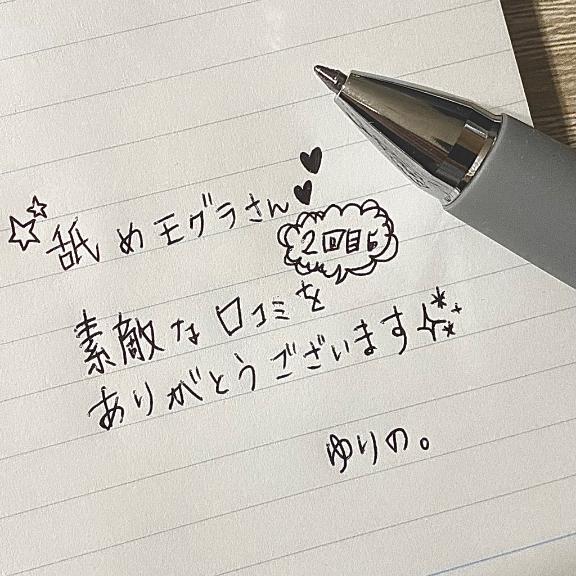 舐めモグラさん
2回目も
素敵な口コミを
ありがとうございます
ゆりの。